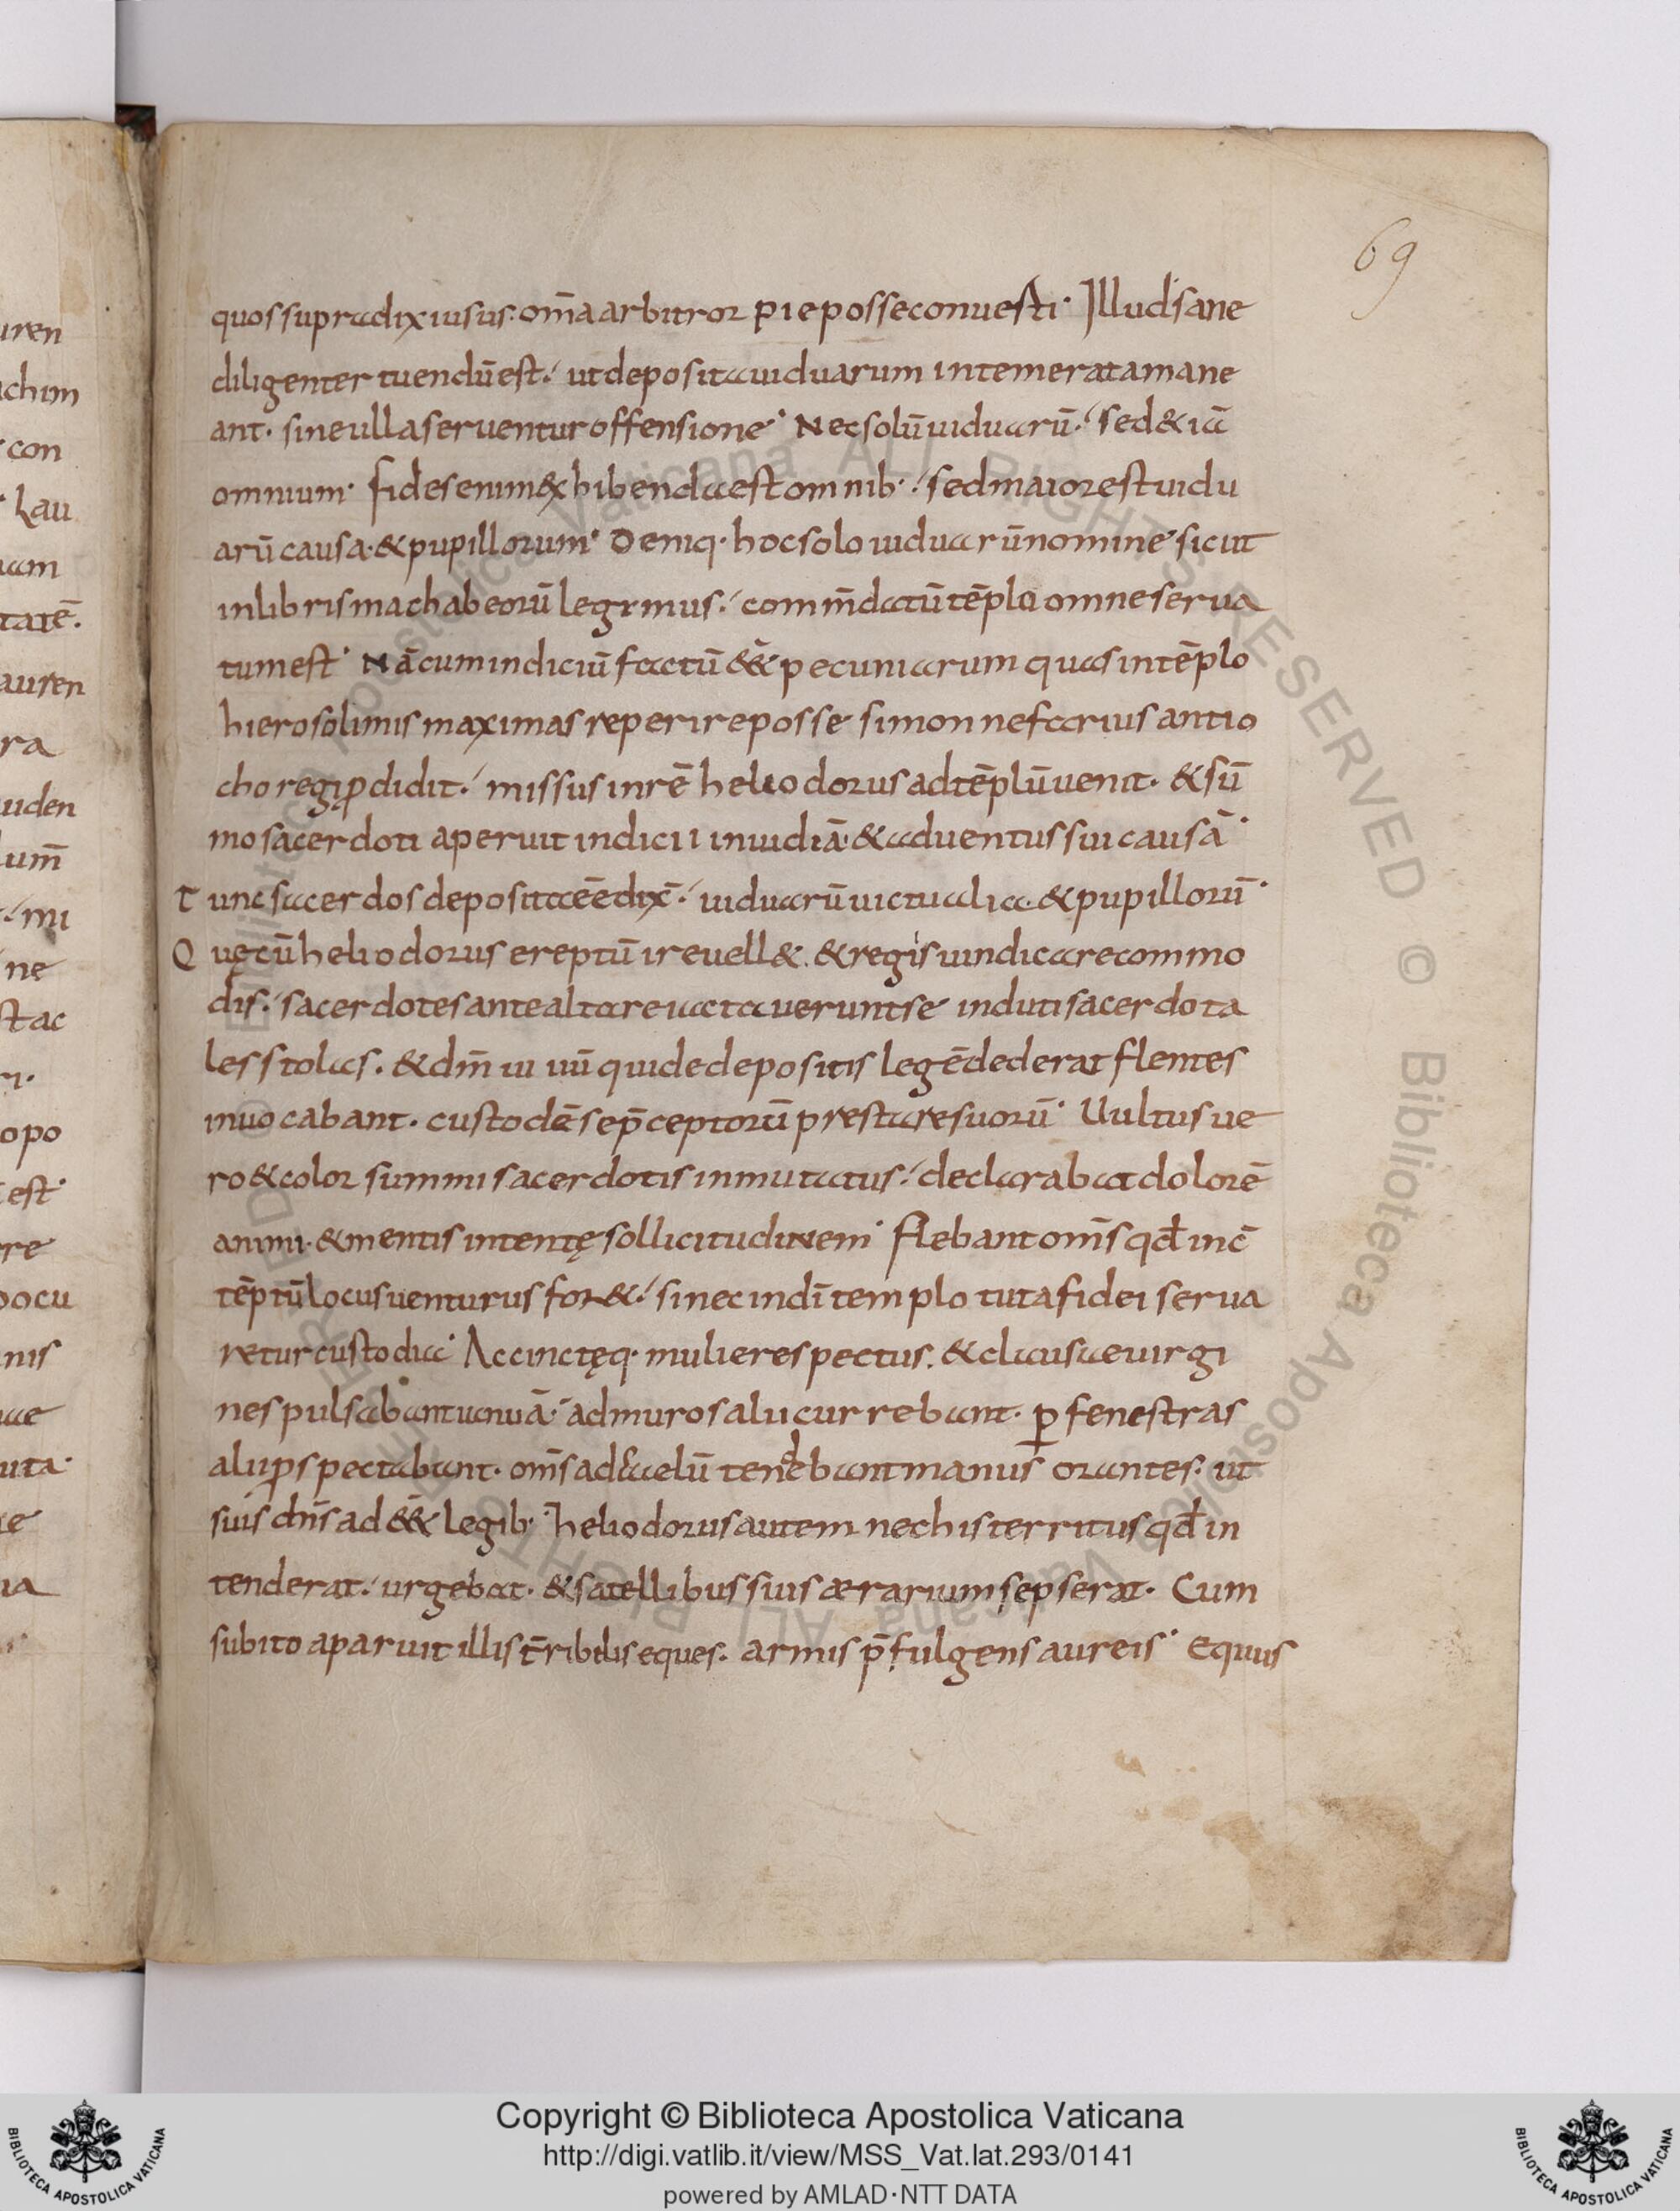 69
quos supra dixi usus. om̄a arbitror pie posse conuesti· Illud sane
diligenter tuendū est·/ ut deposita uiduarum intemerata mane
ant· sine ulla seruentur offensione· Nec solū uiduarū·/ sed & iā
omnium· fides enim exhibenda est omnib·/ sed maior est uidu
arū causa· & pupillorum· Deniq· hoc solo uiduarū nomine sicut
in libris machabeorū legimus·/ comm̄datū tēplo omne serua
tum est· Nā cum indiciū factū ēēt pecuniarum quas in tēplo
hierosolimis maximas reperire posse simon nefarius antio
cho regi ꝓdidit·/ missus in rē heliodorus ad tēplū uenit· & sū
mo sacerdoti aperuit indicii inuidiā· & aduentus sui causā·
Tunc sacerdos deposita eē dix̄·/ uiduarū uictualia· & pupillorū·
Quę cū heliodorus ereptū ire uell&· & regis uindicare commo
dis·/ sacerdotes ante altare iactauerunt se induti sacerdota
les stolas· & dm̄ uiuū qui de depositis legē dederat flentes
inuocabant· custodē se p̄ceptorū prestare suorū· Uultus ue
ro & color summi sacerdotis inmutatus·/ declarabat dolorē
animi· & mentis intentę sollicitudinem· flebant om̄s qd̄ in cō
tēptū locus uenturus for&·/ si nec in dī templo tuta fidei serua
retur custodia· Accinctęq· mulieres pectus· & clausae uirgi
nes pulsabant ianuā· ad muros alii currebant· ꝑ fenestras
alii ꝓspectabant· om̄s ad caelū tendebant manus orantes· ut
suis dn̄s adēēt legib· heliodorus autem nec his territus qd̄ in
tenderat·/ urgebat· & satellibus suis ærarium sepserat· Cum
subito aparuit illis t̄ribilis eques· armis p̄fulgens aureis· Equus
uren
chim
con
Lau
uam
tatē·
auren
ra
uiden
um̄
mi
ne
st ac
ri·
opo
est·
re
pocu
nis
uae
uta·
ie
ia
Copyright © Biblioteca Apostolica Vaticana
http://digi.vatlib.it/view/MSS_Vat.lat.293/0141
powered by AMLAD·NTT DATA
BIBLIOTECA APOSTOLICA VATICANA
BIBLIOTECA APOSTOLICA VATICANA